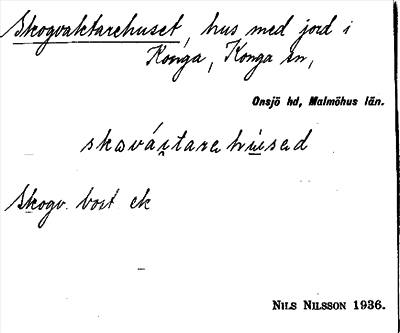 Skogvaktarehuset, hus med jord i
Konga, Konga sn,
Onsjö hd, Malmöhus län.
Skogv. bost ek
NILS NILSSON 1936.